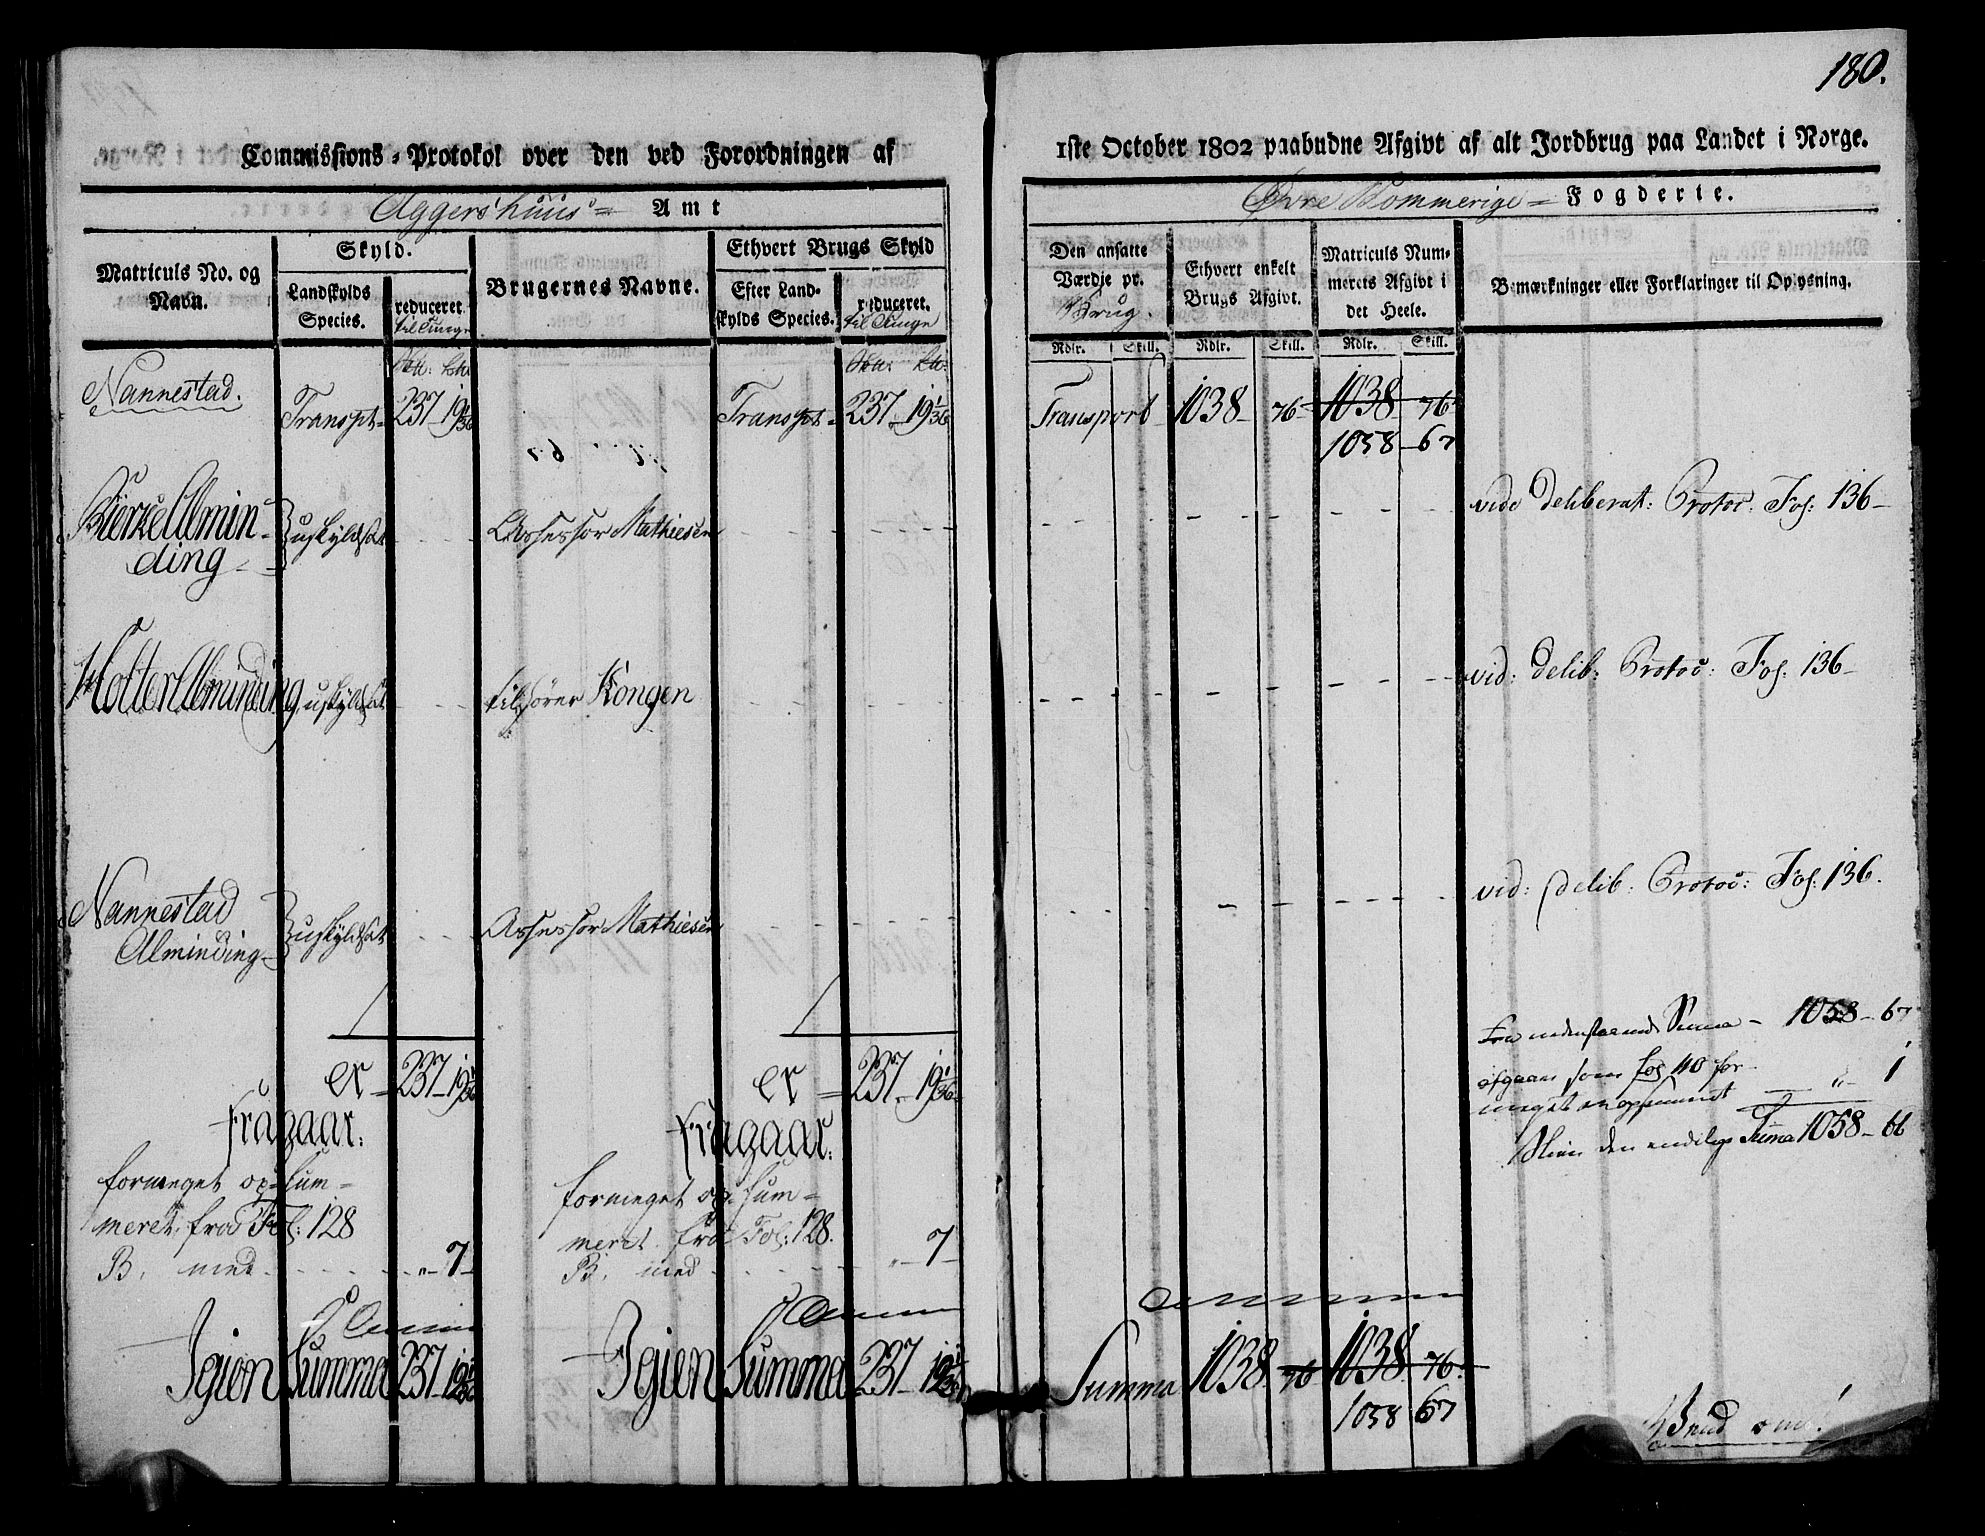 180.
Commissions-Protokol over den ved Forordningen af
1ste October 1802 paabudne Afgivt af alt Jordbrug paa Landet i Norge.
Aggershuus = Amt
Øvre Rommerige = Fogderie.
Matriculs No. og Navn.
Skyld.
Landskylds Species.
reduceret til Tunge
Brugernes Navne.
Ethvert Brugs Skyld
Efter Landskylds Species.
reduceret. til Tunge
Den ansatte Værdie pr. Brug.
Ethvert enkelt Brugs Afgivt.
Matriculs Nummerets Afgivt i det Heele.
Bemærkninger eller Forklaringer til Oplysning.
Rdlr. Skill. Rdlr. Skill. Rdlr. Skill.
Nannestad.
Transpt= 237 19 1/36 Transpt= 237. 19 1/36
Transport 1038 - 76 1038 - 76
1058 - 67
Bierke Almin-
ding uskyldsat Assessor Mathiesen
vide deliberat: Protoc. Fol: 136 -
Holter Alminding uskyldsat tilhører Kongen
vid: delib: Protoc: Fol: 136 -
Nannestad
Alminding uskyldsat Assessor Mathiesen
vid: delib: Protoc: Fol: 136.
er = 237 - 19 1/36 er = 237. 19 1/36
Fragaar: Fragaar:
formeget op-sum-
meret fra Fol: 128
B. med - 7 -
formeget op-sum-
meret fra Fol: 128.
B. med - 7 -
Igien Summa 237 - 12 1/36 Igien Summa 237 - 12 1/36
Summa 1038. 76 1038. 76.
1058 67
Fra Summa - 1058 - 67
afgaar som fol 110 for-
meget 1
den endelige Suma 1058 - 66
Vend om!